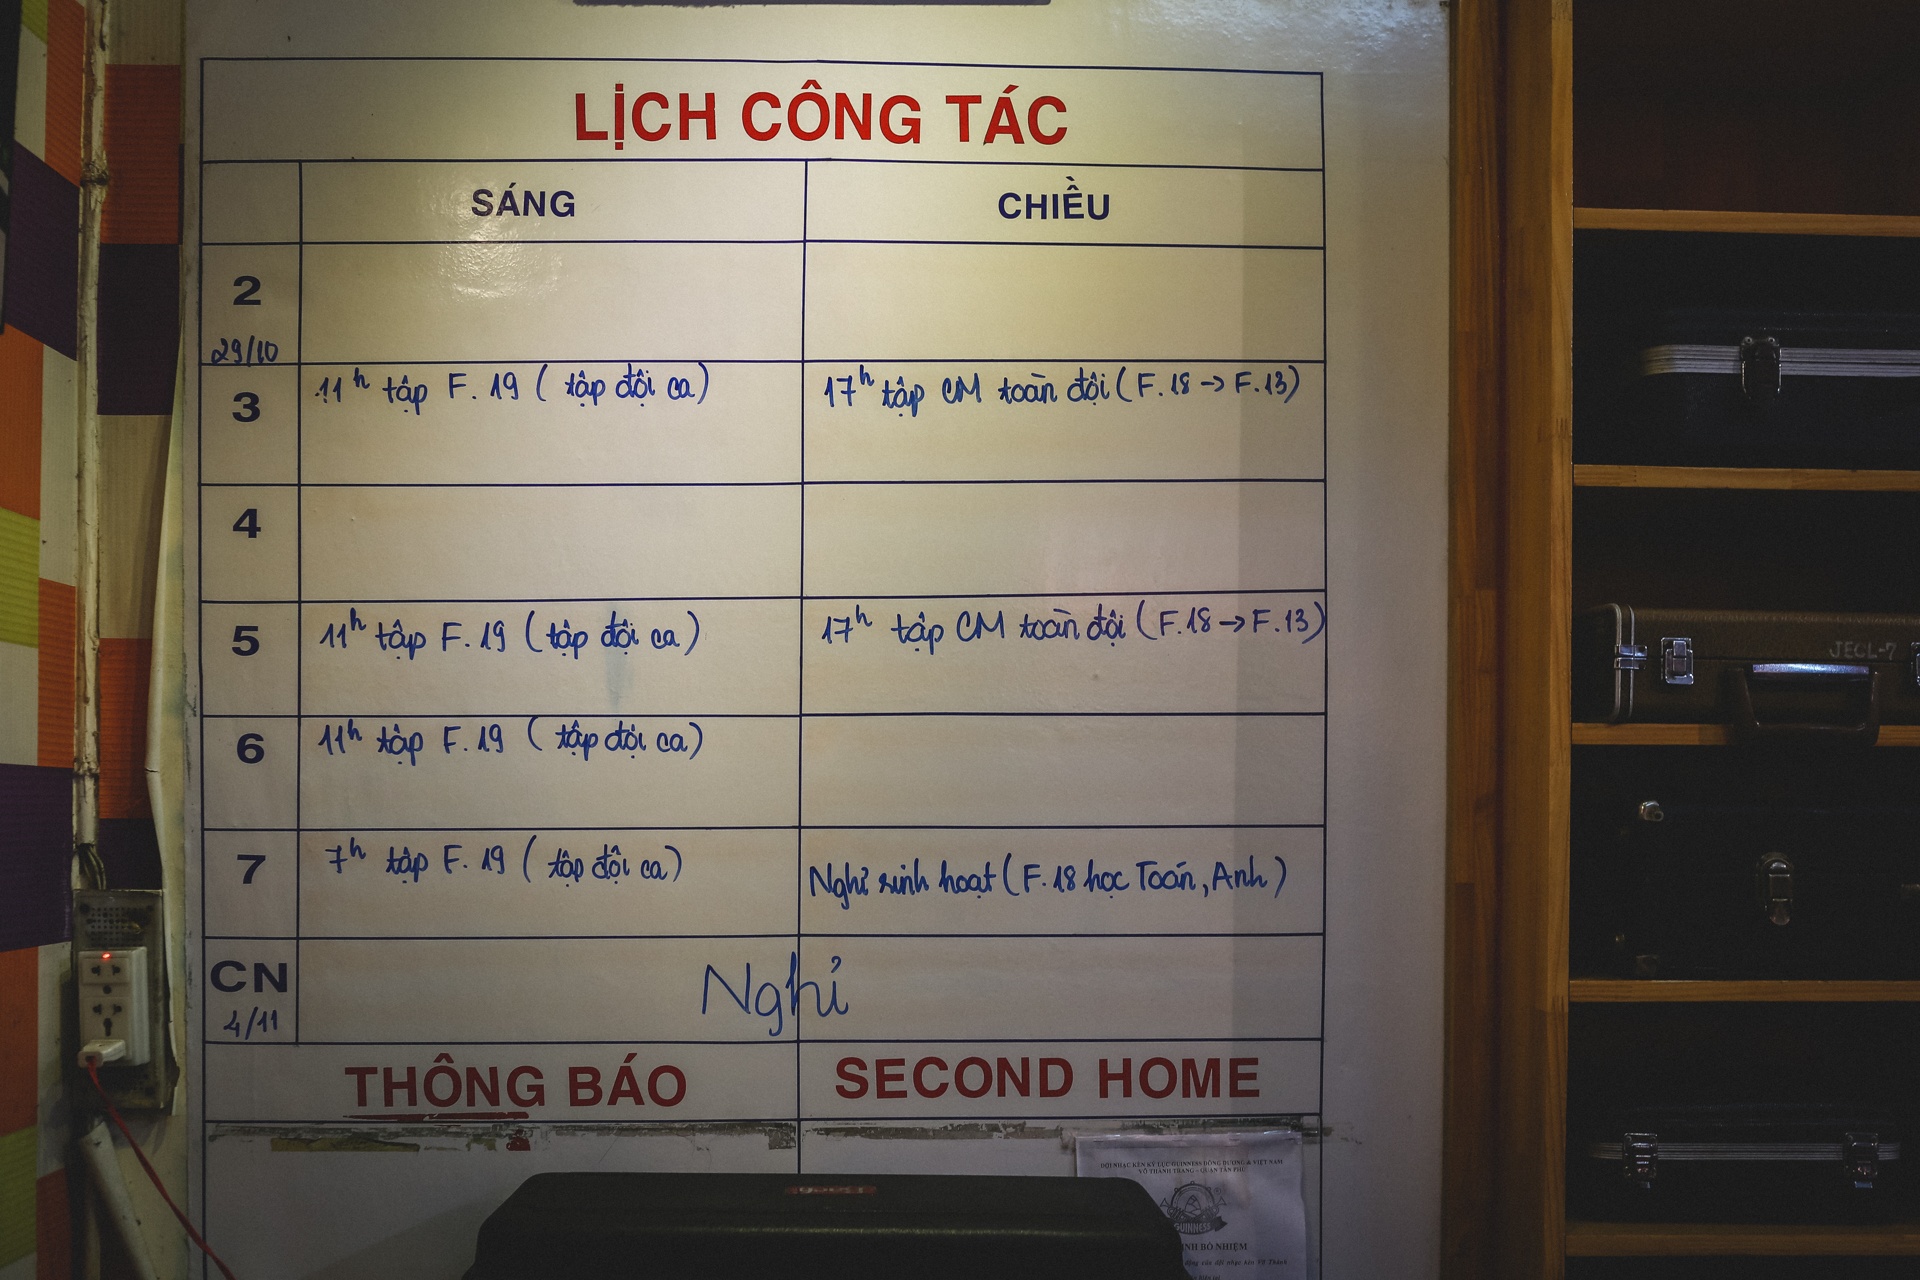 LỊCH CÔNG TÁC
SÁNG CHIỀU
2
29/10
3 11h tập F.19 (tập đội ca) 17h tập CM toàn đội (F.18 → F.13)
4
5 11h tập F.19 (tập đội ca) 17h tập CM toàn đội (F.18 → F.13)
6 11h tập F.19 (tập đội ca)
7 7h tập F.19 (tập đội ca) Nghỉ sinh hoạt (F.18 học Toán, Anh)
CN Nghỉ
4/11
THÔNG BÁO SECOND HOME
JECL-7
ĐỘI NHẠC KÈN KỶ LỤC GUINNESS ĐÔNG DƯƠNG & VIỆT NAM
VÕ THÀNH TRANG - QUẬN TÂN PHÚ
GUINNESS
BỔ NHIỆM
đội nhạc kèn Võ Thành